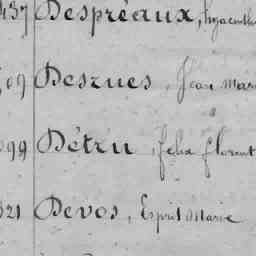 437 Despréaux, hyacinthe
509 Deszues, Jean Marie
099 Détru, felix florent
321 Devos, Esprit Marie